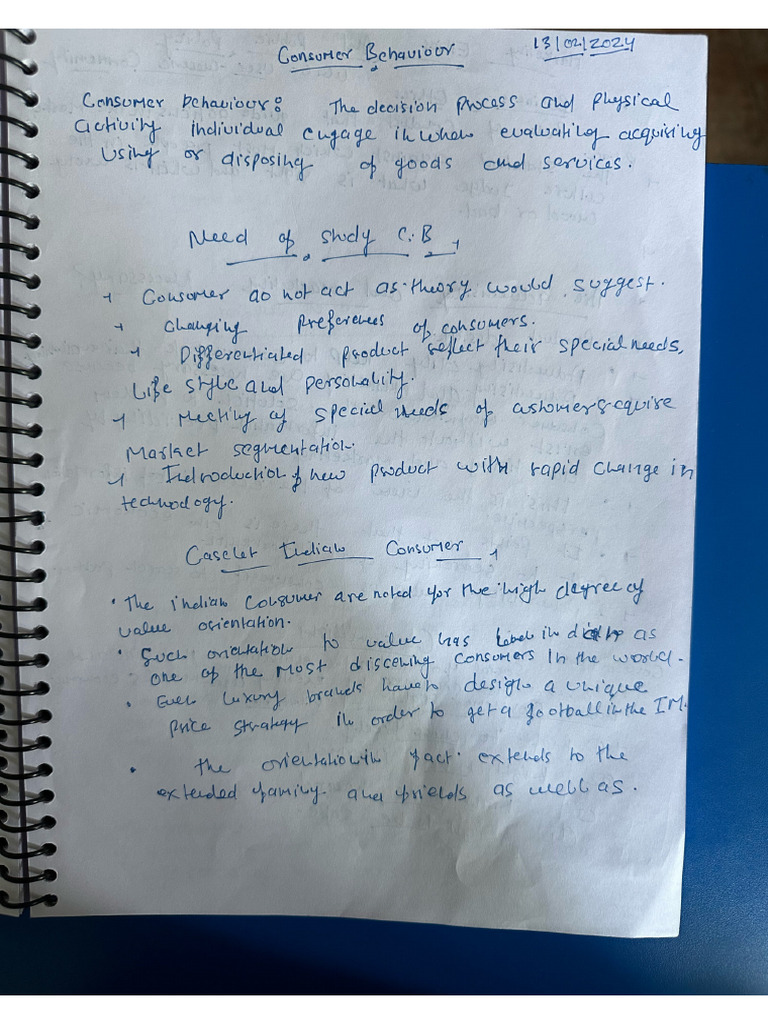 Consumer Behaviour
13/02/2024
Consumer behaviour: The decision process and physical
activity individual engage in when evaluating acquiring
using or disposing of goods and services.
Need of study C.B
Consumer do not act as theory would suggest.
Changing preferences of consumers.
Differentiated product reflect their special needs,
Life style and personality.
Meeting of special needs of customers require
Market segmentation.
Introduction of new product with rapid change in
technology.
Caselet Indian Consumer
• The indian consumer are noted for the high degree of
value orientation.
• Such orientation to value has as
one of the most discerning consumers in the world.
• Even luxury brands have to design a unique
Price strategy in order to get a football in the IM.
• the orientation in fact extends to the
extended family and friends as well as.